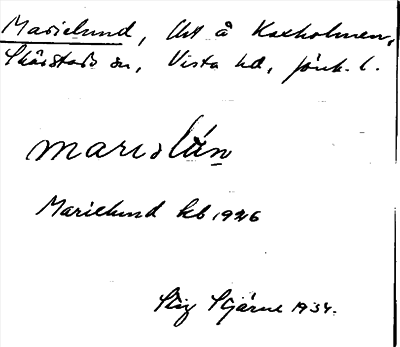 Marielund, Uts å Kaxholmen,
Skärstads sn, Vista hd, Jönk. l.
marislún
Marielund kb 1926
Stig Stjärne 1934.